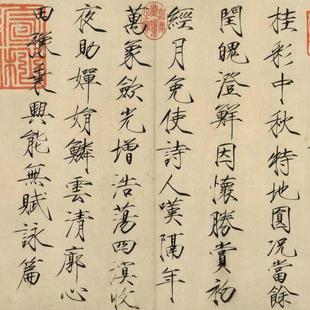 桂彩中秋特地圓況當餘
閏魄澄鮮因懷勝賞初
經月免使詩人嘆隔年
萬象斂光增浩蕩四溟收
夜助嬋娟鱗雲清廓心
田豫乘興能無賦詠篇